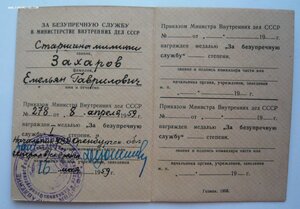 ЗА БЕЗУПРЕЧНУЮ СЛУЖБУ
В МИНИСТЕРСТВЕ ВНУТРЕННИХ ДЕЛ СССР
Старшина милиции
звание,
Захаров
фамилия,
Емельян Гаврилович
имя и отчество
Приказом Министра Внутренних Дел СССР
№ 278 от „8“ апреля 1959 г.
награжден медалью „За безупречную
службу“ степени.
Оренбургск. обл.
мая 1959 г.
Приказом Министра Внутренних Дел СССР
№ от „ “ 19 г.
награжден медалью „За безупречную
службу“ степени.
звание и подпись командира части или
начальника органа, учреждения, заведения
„ “ 19 г.
Приказом Министра Внутренних Дел СССР
№ от „ “ 19 г.
награжден медалью „За безупречную
службу“ степени.
звание и подпись командира части или
начальника органа, учреждения, заведения
„ “ 19 г.
Гознак. 1958.